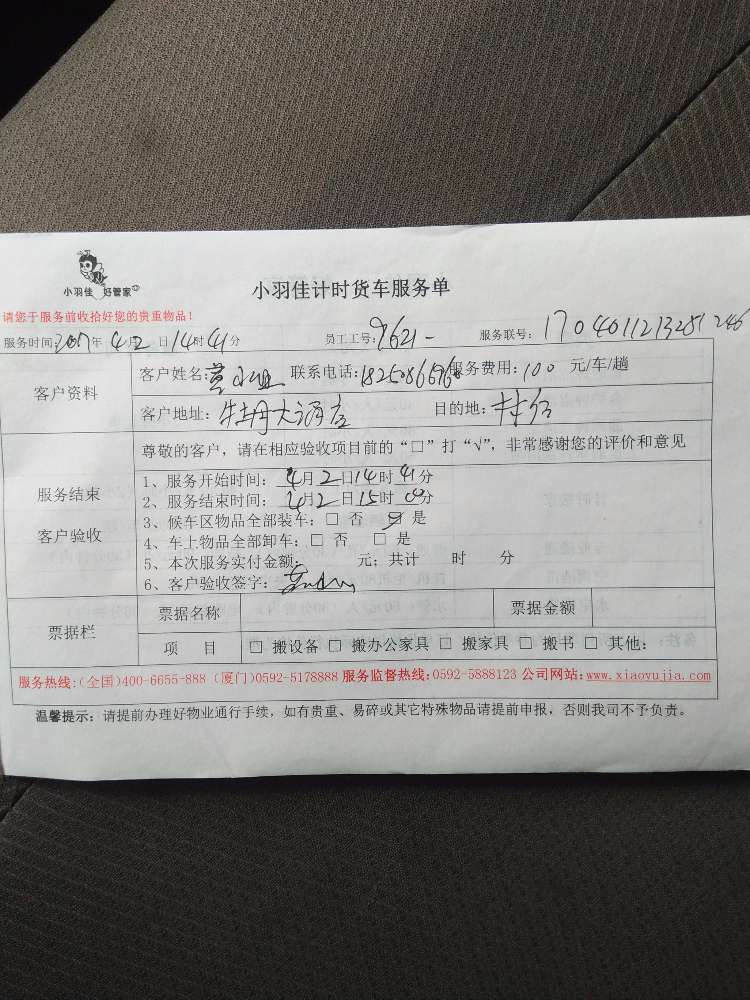 小羽佳 好管家
小羽佳计时货车服务单
请您于服务前收拾好您的贵重物品！
服务时间：2017年 4月2日14时41分 员工工号：9621- 服务联号：170401121328 1246
客户资料
客户姓名： 小姐 联系电话： 服务费用：100 元/车/趟
客户地址：牡丹大酒店 目的地：
尊敬的客户，请在相应验收项目前的“□”打“√”，非常感谢您的评价和意见
服务结束
客户验收
1、服务开始时间：4月2日14时41分
2、服务结束时间：4月2日15时09分
3、候车区物品全部装车：□ 否 ☑ 是
4、车上物品全部卸车：□ 否 □ 是
5、本次服务实付金额： 元；共计 时 分
6、客户验收签字：
票据栏
票据名称 票据金额
项 目 □ 搬设备 □ 搬办公家具 □ 搬家具 □ 搬书 □ 其他：
服务热线：(全国)400-6655-888 (厦门)0592-5178888 服务监督热线：0592-5888123 公司网站：www.xiaoyujia.com
温馨提示：请提前办理好物业通行手续，如有贵重、易碎或其它特殊物品请提前申报，否则我司不予负责。